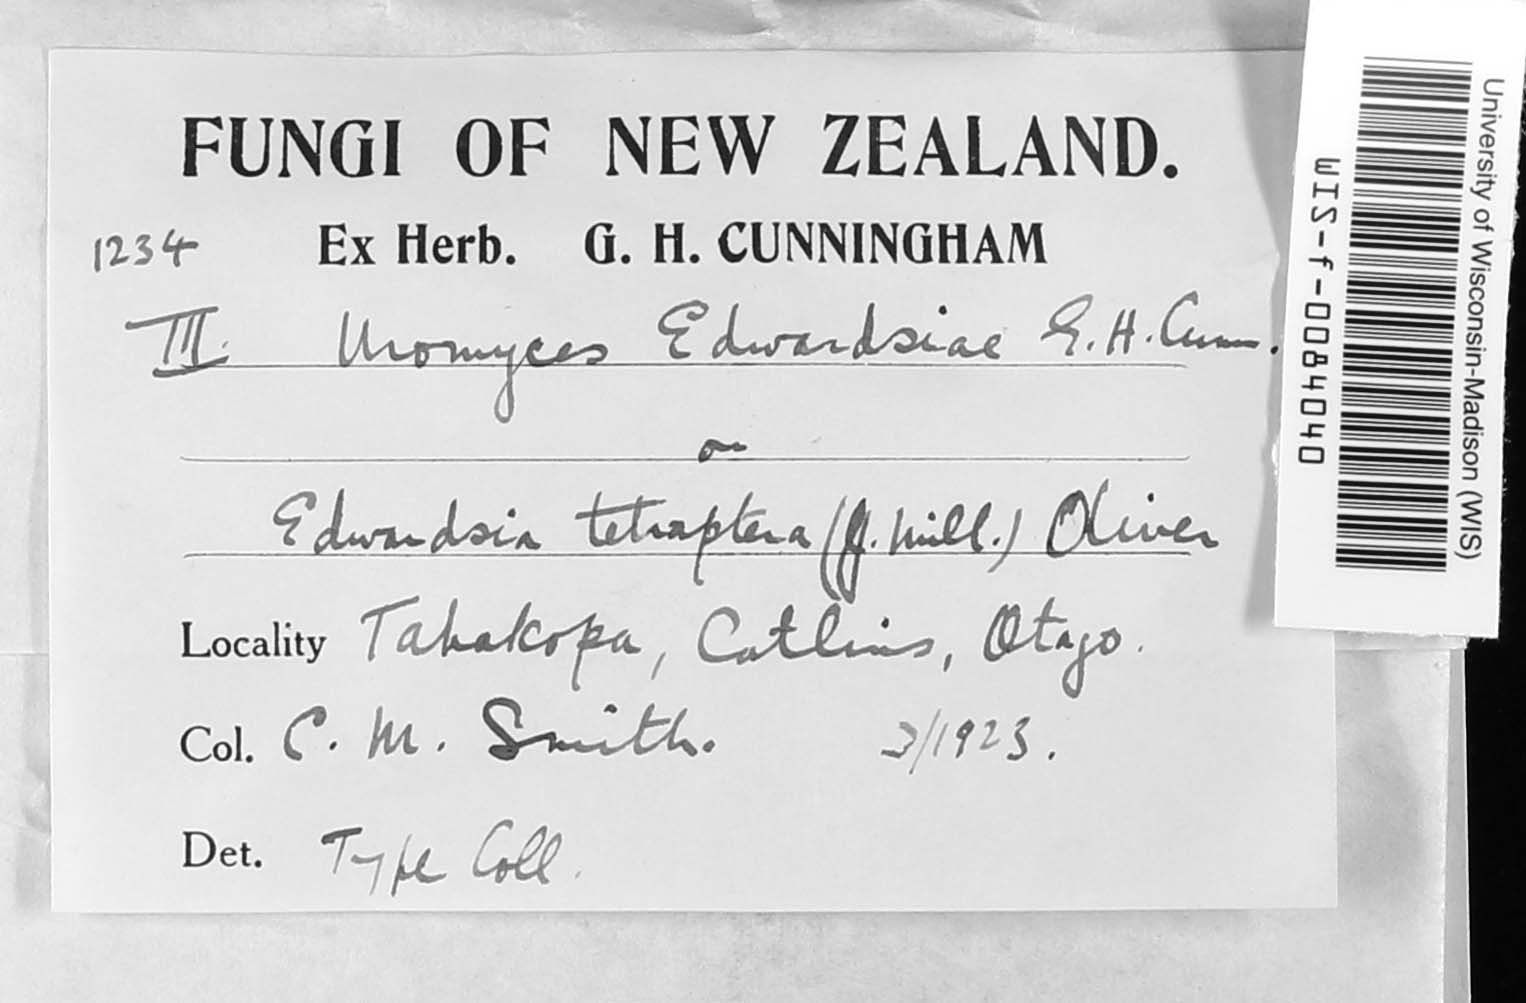 FUNGI OF NEW ZEALAND.
1234 Ex Herb. G. H. CUNNINGHAM
III. Uromyces Edwardsiae G. H. Cunn.
on
Edwardsia tetraptera (J. Mill.) Oliver
Locality Tahakopa, Catlins, Otago.
Col. C. M. Smith. 3/1923.
Det. Type Coll.
University of Wisconsin-Madison (WIS)
WIS-f-0084040